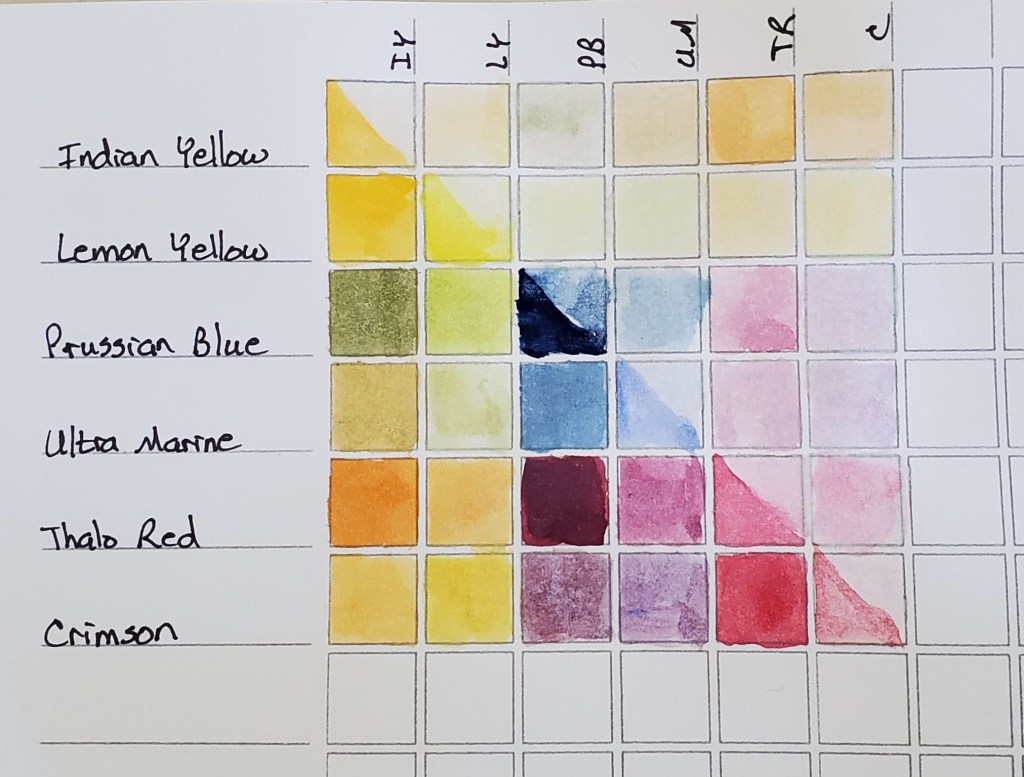 IY LY PB UM TR C
Indian Yellow
Lemon Yellow
Prussian Blue
Ultra Marine
Thalo Red
Crimson